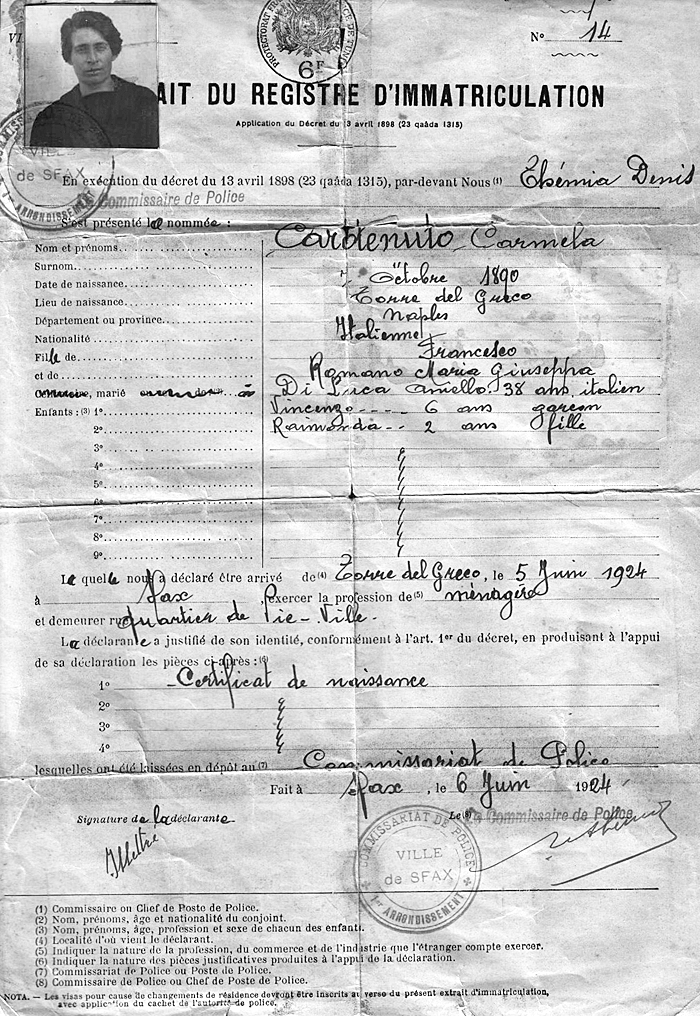 N° 14
PROTECTORAT F
CE DE TUNI
6F
AIT DU REGISTRE D'IMMATRICULATION
Application du Décret du 13 avril 1898 (23 qaâda 1315)
COMMISSA
VILLE
de SFAX
ARRONDISSEMENT
En exécution du décret du 13 avril 1898 (23 qaâda 1315), par-devant Nous (1) Ehémia Denis
Commissaire de Police
S'est présenté la nommée :
Nom et prénoms Carmela
Surnom
Date de naissance Octobre 1890
Lieu de naissance Torre del Greco
Département ou province Naples
Nationalité Italienne
Fille de Francesco
et de Romano Maria Giuseppa
marié Di Luca Aniello. 38 ans. italien
Enfants : (3) 1° Vincenzo 6 ans garçon
2° Raimonda 2 ans fille
3°
4°
5°
6°
7°
8°
9°
La quelle nous a déclaré être arrivé de (4) Torre del Greco, le 5 Juin 1924
à Sfax, exercer la profession de (5) ménagère
et demeurer rue quartier de Pie-Ville.
La déclarante a justifié de son identité, conformément à l'art. 1er du décret, en produisant à l'appui
de sa déclaration les pièces ci-après : (6)
1° Certificat de naissance
2°
3°
4°
lesquelles ont été laissées en dépôt au (7) Commissariat de Police
Fait à Sfax, le 6 Juin 1924
Signature de la déclarante
Le (8) Commissaire de Police
COMMISSARIAT DE POLICE
VILLE
de SFAX
1er ARRONDISSEMENT
(1) Commissaire ou Chef de Poste de Police.
(2) Nom, prénoms, âge et nationalité du conjoint.
(3) Nom, prénoms, âge, profession et sexe de chacun des enfants.
(4) Localité d'où vient le déclarant.
(5) Indiquer la nature de la profession, du commerce et de l'industrie que l'étranger compte exercer.
(6) Indiquer la nature des pièces justificatives produites à l'appui de la déclaration.
(7) Commissariat de Police ou Poste de Police.
(8) Commissaire de Police ou Chef de Poste de Police.
NOTA. — Les visas pour cause de changements de résidence devront être inscrits au verso du présent extrait d'immatriculation,
avec application du cachet de l'autorité de police.